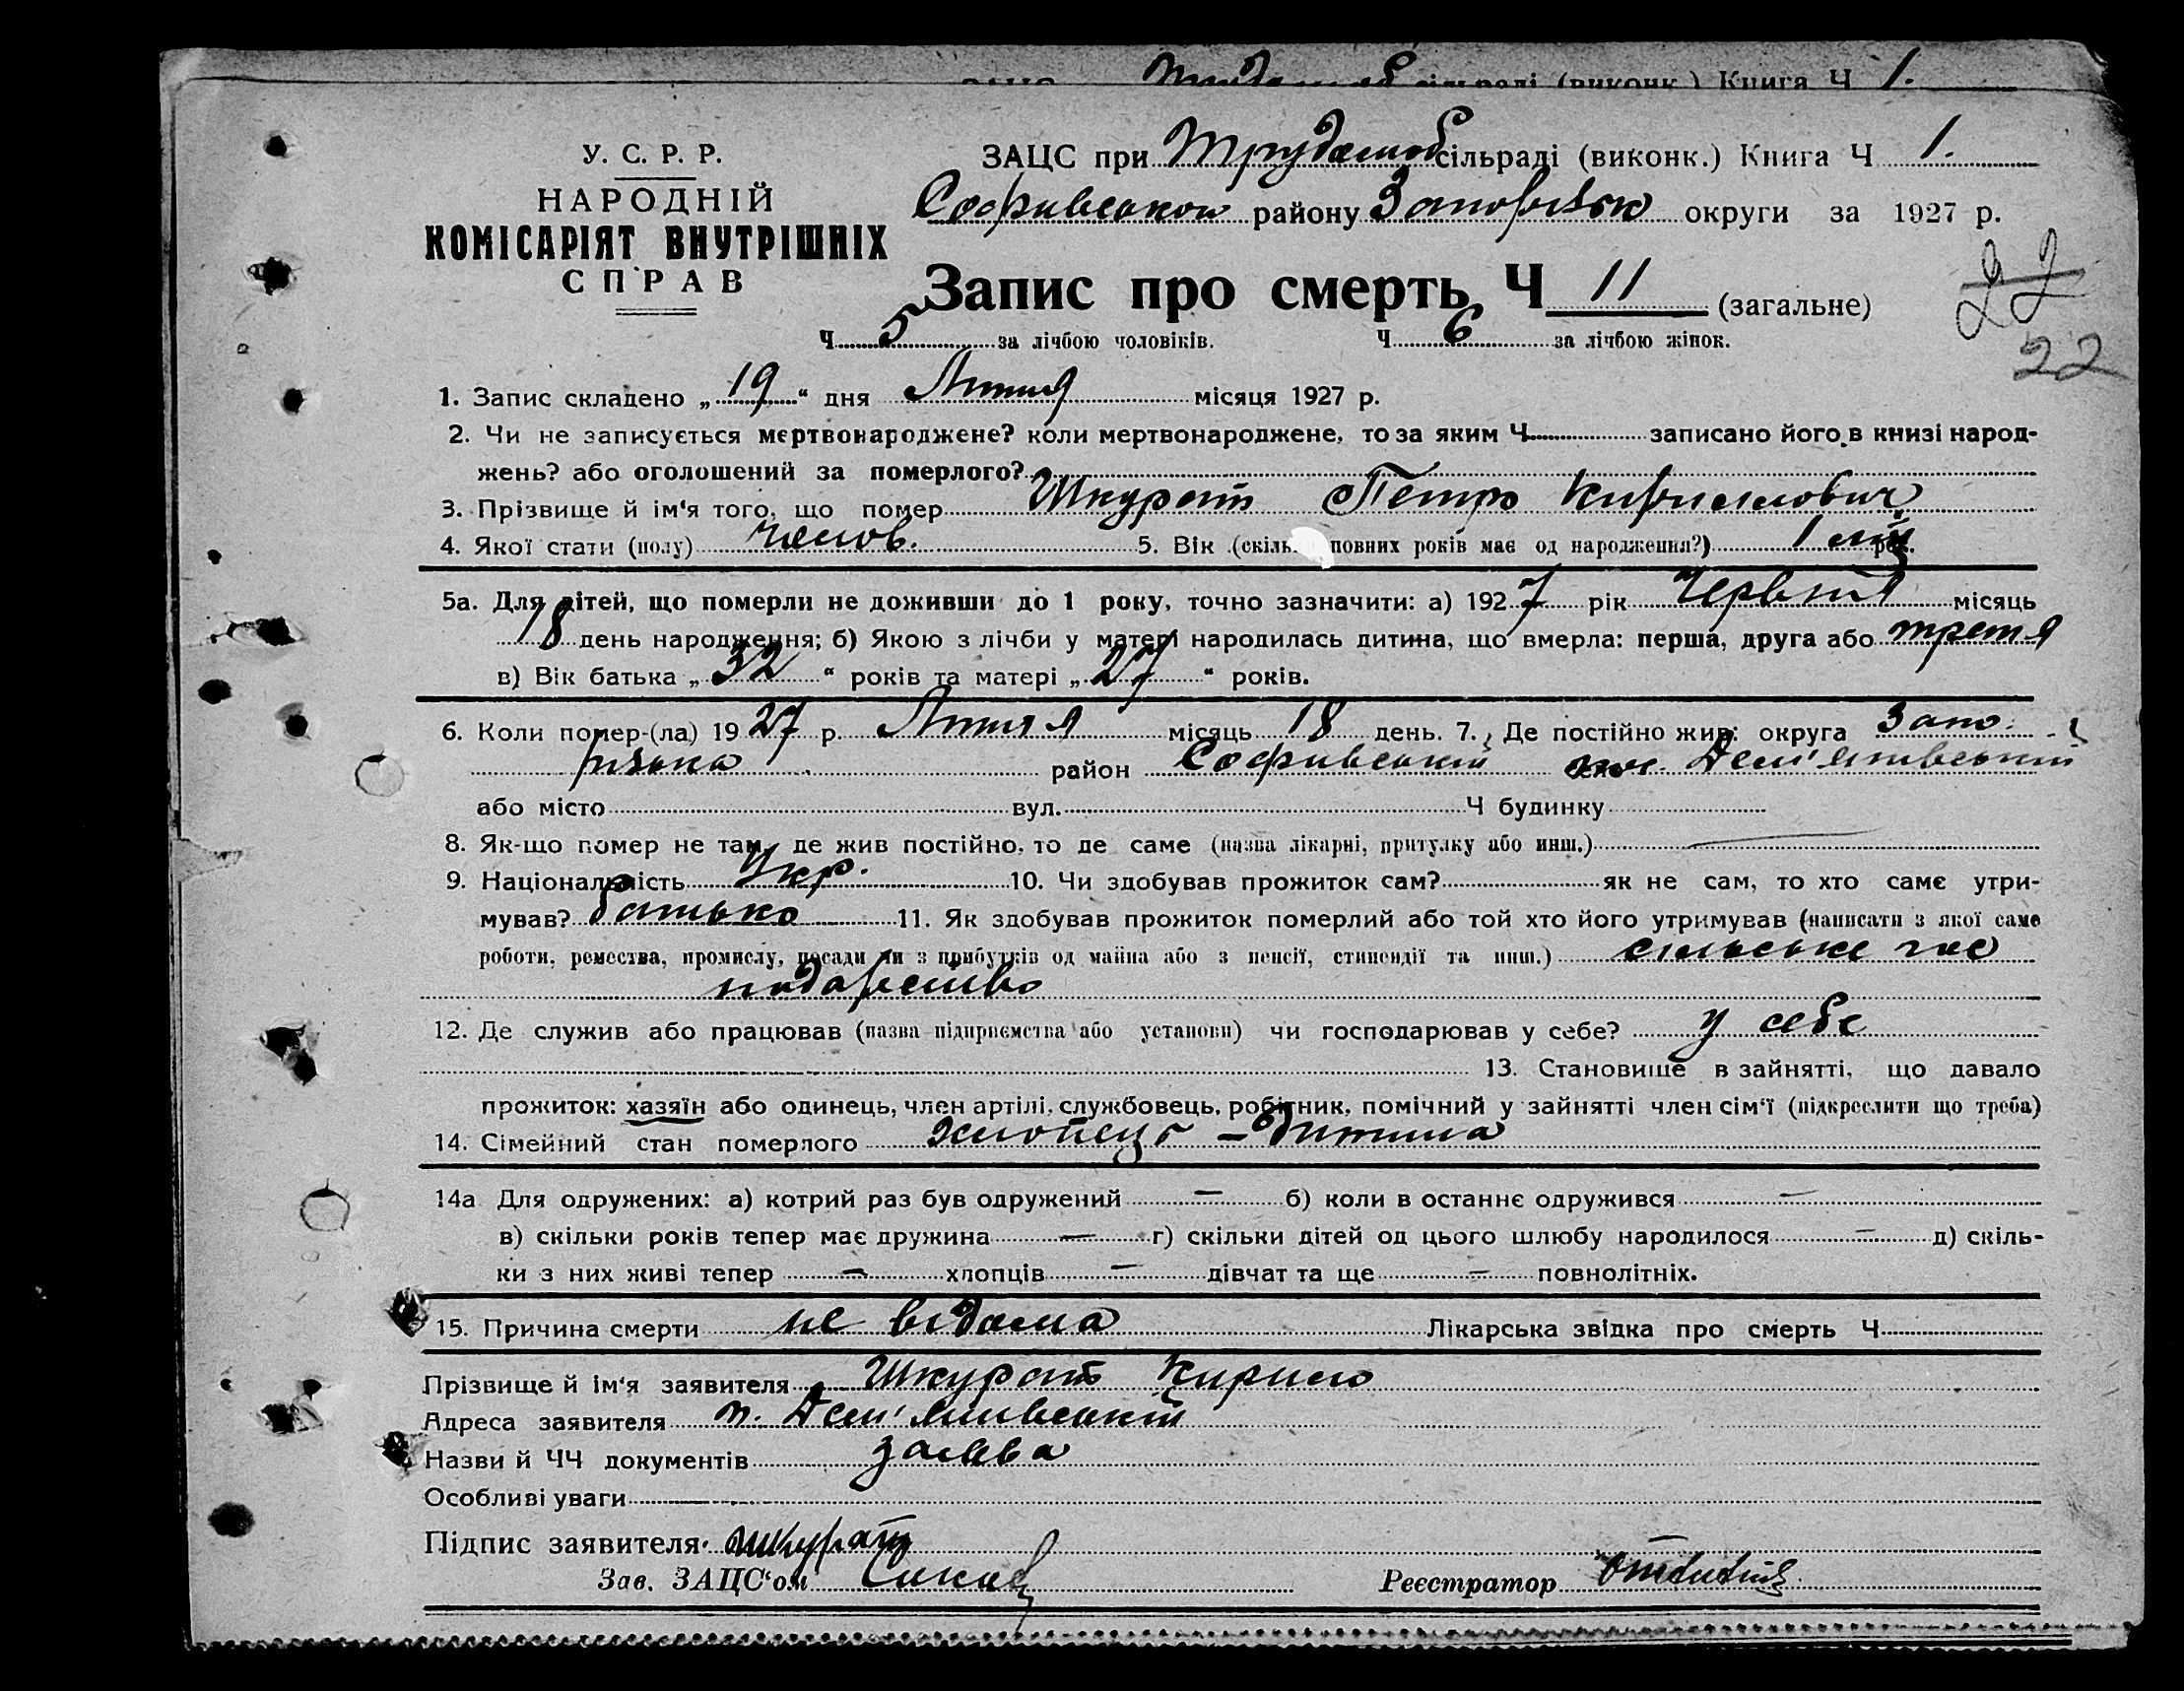 ЗАЦС сільраді (виконк.) Книга Ч 1.
У. С. Р. Р.
НАРОДНІЙ
КОМІСАРІЯТ ВНУТРІШНІХ
СПРАВ
ЗАЦС при сільраді (виконк.) Книга Ч 1.
Софиївської району Запорізьк округи за 1927 р.
Запис про смерть Ч 11 (загальне)
22
22
Ч 5 за лічбою чоловіків. Ч 6 за лічбою жінок.
1. Запис складено „ 19 “ дня Липня місяця 1927 р.
2. Чи не записується мертвонароджене? коли мертвонароджене, то за яким Ч записано його в книзі народ-
жень? або оголошений за померлого?
3. Прізвище й ім'я того, що помер Шкурат Петро Кирилович
4. Якої стати (полу) чолов. 5. Вік (скільки повних років має од народження?) 1 міс
5а. Для дітей, що померли не доживши до 1 року, точно зазначити: а) 1927 рік Червня місяць
18 день народження; б) Якою з лічби у матері народилась дитина, що вмерла: перша, друга або третя
в) Вік батька „ 32 “ років та матері „ 27 “ років.
6. Коли помер-(ла) 1927 р. Липня місяць 18 день. 7. Де постійно жив: округа Запо-
різька район Софиївський Дем'янівський
або місто вул. Ч будинку
8. Як-що помер не там, де жив постійно, то де саме (назва лікарні, притулку або инш.)
9. Національність Укр. 10. Чи здобував прожиток сам? як не сам, то хто саме утри-
мував? батько 11. Як здобував прожиток померлий або той хто його утримував (написати з якої саме
роботи, ремества, промислу, посади чи з прибутків од майна або з пенсії, стипендії та инш.) сільське гос
подарство
12. Де служив або працював (назва підприємства або установи) чи господарював у себе? у себе
13. Становище в зайнятті, що давало
прожиток: хазяїн або одинець, член артілі, службовець, робітник, помічний у зайнятті член сім'ї (підкреслити що треба)
14. Сімейний стан померлого хлопець - дитина
14а Для одружених: а) котрий раз був одружений — б) коли в останнє одружився —
в) скільки років тепер має дружина — г) скільки дітей од цього шлюбу народилося — д) скіль-
ки з них живі тепер — хлопців — дівчат та ще — повнолітніх.
15. Причина смерти не відома Лікарська звідка про смерть Ч
Прізвище й ім'я заявителя Шкурат Кирило
Адреса заявителя п. Дем'янівський
Назви й ЧЧ документів заява
Особливі уваги
Підпис заявителя Шкурат
Зав. ЗАЦС'ом Реєстратор